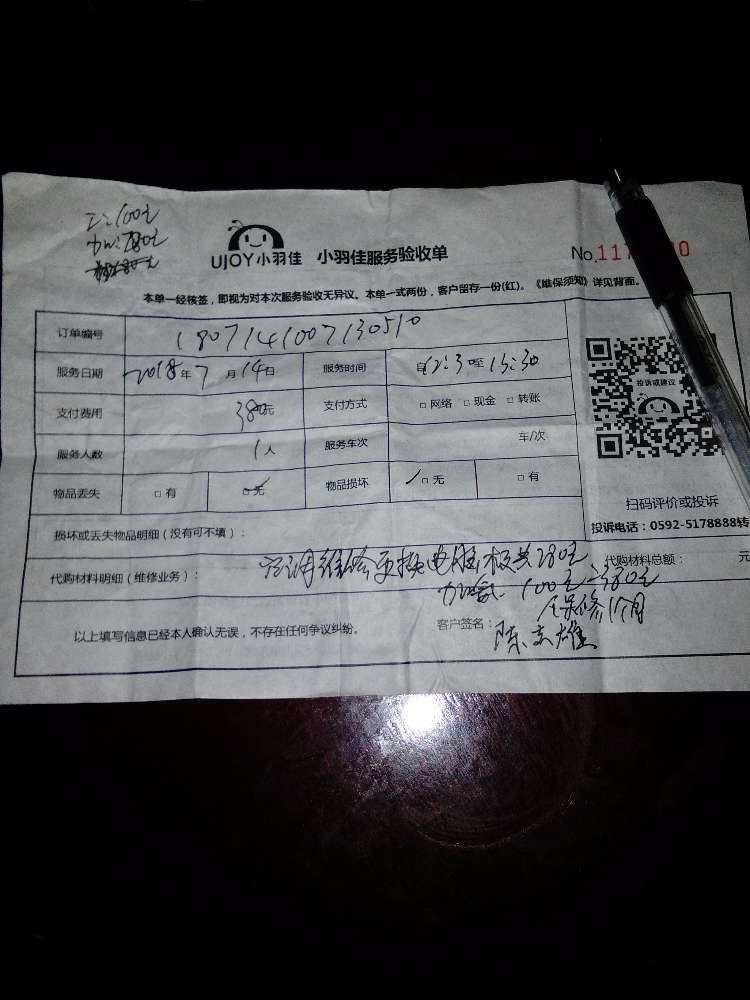 工:100元
UJOY小羽佳 小羽佳服务验收单 No.
本单一经核签，即视为对本次服务验收无异议。本单一式两份，客户留存一份(红)。《维保须知》详见背面。
订单编号 1807141007130510
服务日期 2018年7月14日 服务时间 自12:30至13:30
支付费用 380元 支付方式 □网络 □现金 □转账
服务人数 1人 服务车次 车/次
物品丢失 □有 □无 物品损坏 □无 □有
投诉或建议
扫码评价或投诉
投诉电话：0592-5178888转
损坏或丢失物品明细（没有可不填）：
代购材料明细（维修业务）： 空调维修更换电脑板共280元 代购材料总额： 元
加氟 100元=380元
保修1个月
以上填写信息已经本人确认无误，不存在任何争议纠纷。 客户签名：陈志雄